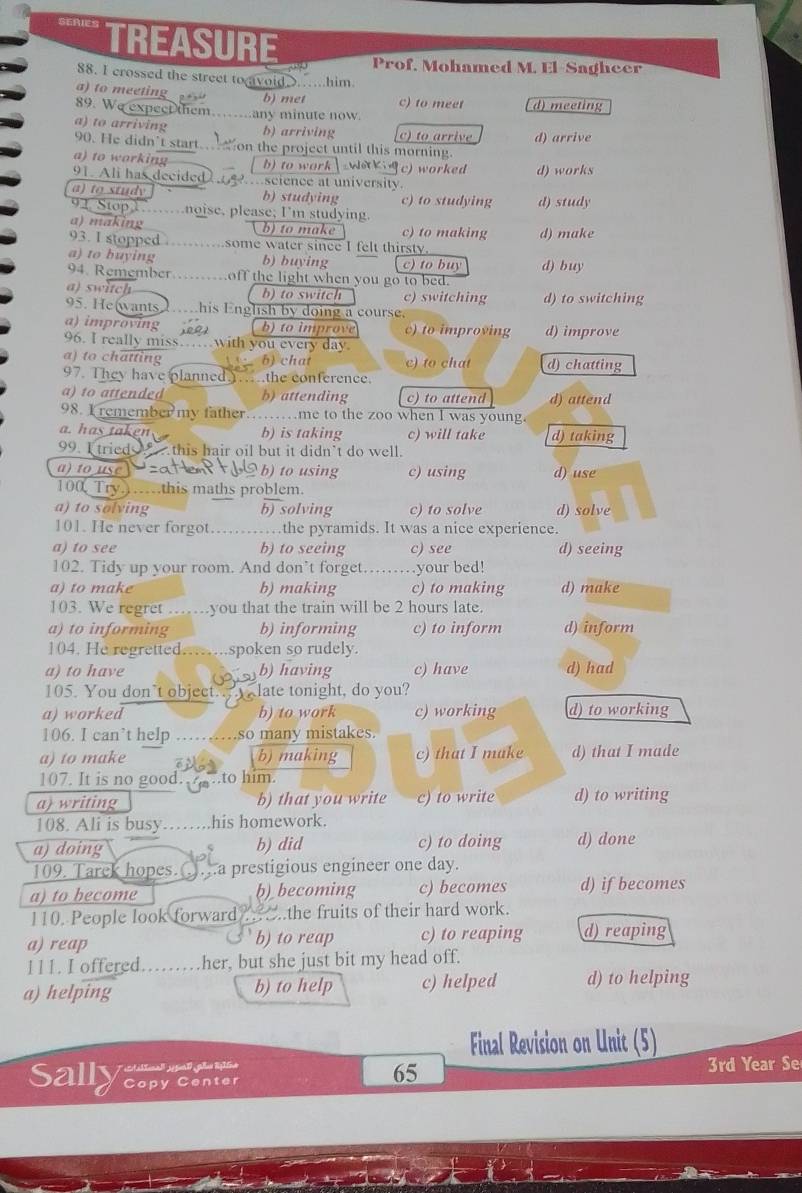 SERIES
TREASURE
Prof. Mohamed M. El-Sagheer
88. I crossed the street to avoid......him.
a) to meeting b) met c) to meet d) meeting
89. We expect them.........any minute now.
a) to arriving b) arriving c) to arrive d) arrive
90. He didn't start.........on the project until this morning.
a) to working b) to work working c) worked d) works
91. Ali has decided.........science at university.
a) to study b) studying c) to studying d) study
92. Stop.........noise, please; I'm studying.
a) making b) to make c) to making d) make
93. I stopped ............some water since I felt thirsty.
a) to buying b) buying c) to buy d) buy
94. Remember...........off the light when you go to bed.
a) switch b) to switch c) switching d) to switching
95. He wants......his English by doing a course.
a) improving b) to improve c) to improving d) improve
96. I really miss......with you every day.
a) to chatting b) chat c) to chat d) chatting
97. They have planned......the conference.
a) to attended b) attending c) to attend d) attend
98. I remember my father.........me to the zoo when I was young.
a. has taken b) is taking c) will take d) taking
99. I tried.......this hair oil but it didn't do well.
a) to use b) to using c) using d) use
100. Try.......this maths problem.
a) to solving b) solving c) to solve d) solve
101. He never forgot............the pyramids. It was a nice experience.
a) to see b) to seeing c) see d) seeing
102. Tidy up your room. And don't forget.........your bed!
a) to make b) making c) to making d) make
103. We regret .......you that the train will be 2 hours late.
a) to informing b) informing c) to inform d) inform
104. He regretted........spoken so rudely.
a) to have b) having c) have d) had
105. You don't object.......late tonight, do you?
a) worked b) to work c) working d) to working
106. I can't help ...........so many mistakes.
a) to make b) making c) that I make d) that I made
107. It is no good........to him.
a) writing b) that you write c) to write d) to writing
108. Ali is busy........his homework.
a) doing b) did c) to doing d) done
109. Tarek hopes.......a prestigious engineer one day.
a) to become b) becoming c) becomes d) if becomes
110. People look forward ........the fruits of their hard work.
a) reap b) to reap c) to reaping d) reaping
111. I offered..........her, but she just bit my head off.
a) helping b) to help c) helped d) to helping
Final Revision on Unit (5)
Sally Copy Center
65
3rd Year Se